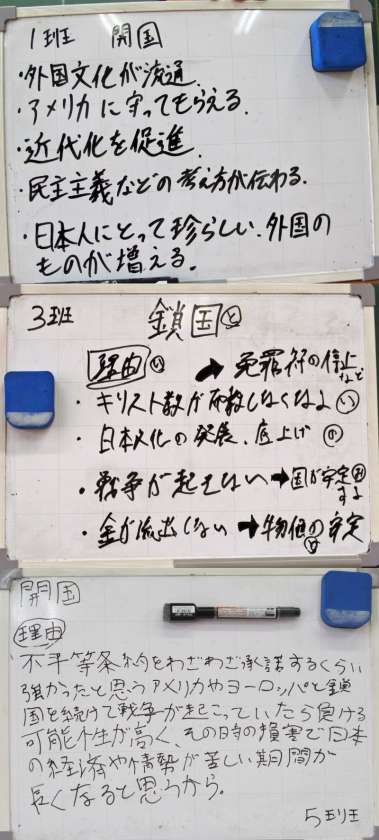 1班 開国
・外国文化が流通
・アメリカに守ってもらえる.
・近代化を促進.
・民主主義などの考え方が伝わる.
・日本人にとって珍らしい.外国の
ものが増える.
3班 鎖国と
理由 い
➡免罪符の停止
など
・キリスト教が布教しなくなる い
・日本文化の発展、底上げ の
・戦争が起きない➡国が安定
する
・金が流出しない➡物価の安定
開国
理由
不平等条約をわざわざ承諾するくらい
強かったと思うアメリカやヨーロッパと鎖
国を続けて戦争が起こっていたら負ける
可能性が高く、その時の損害で日本
の経済や情勢が苦しい期間が
長くなると思うから。
5班